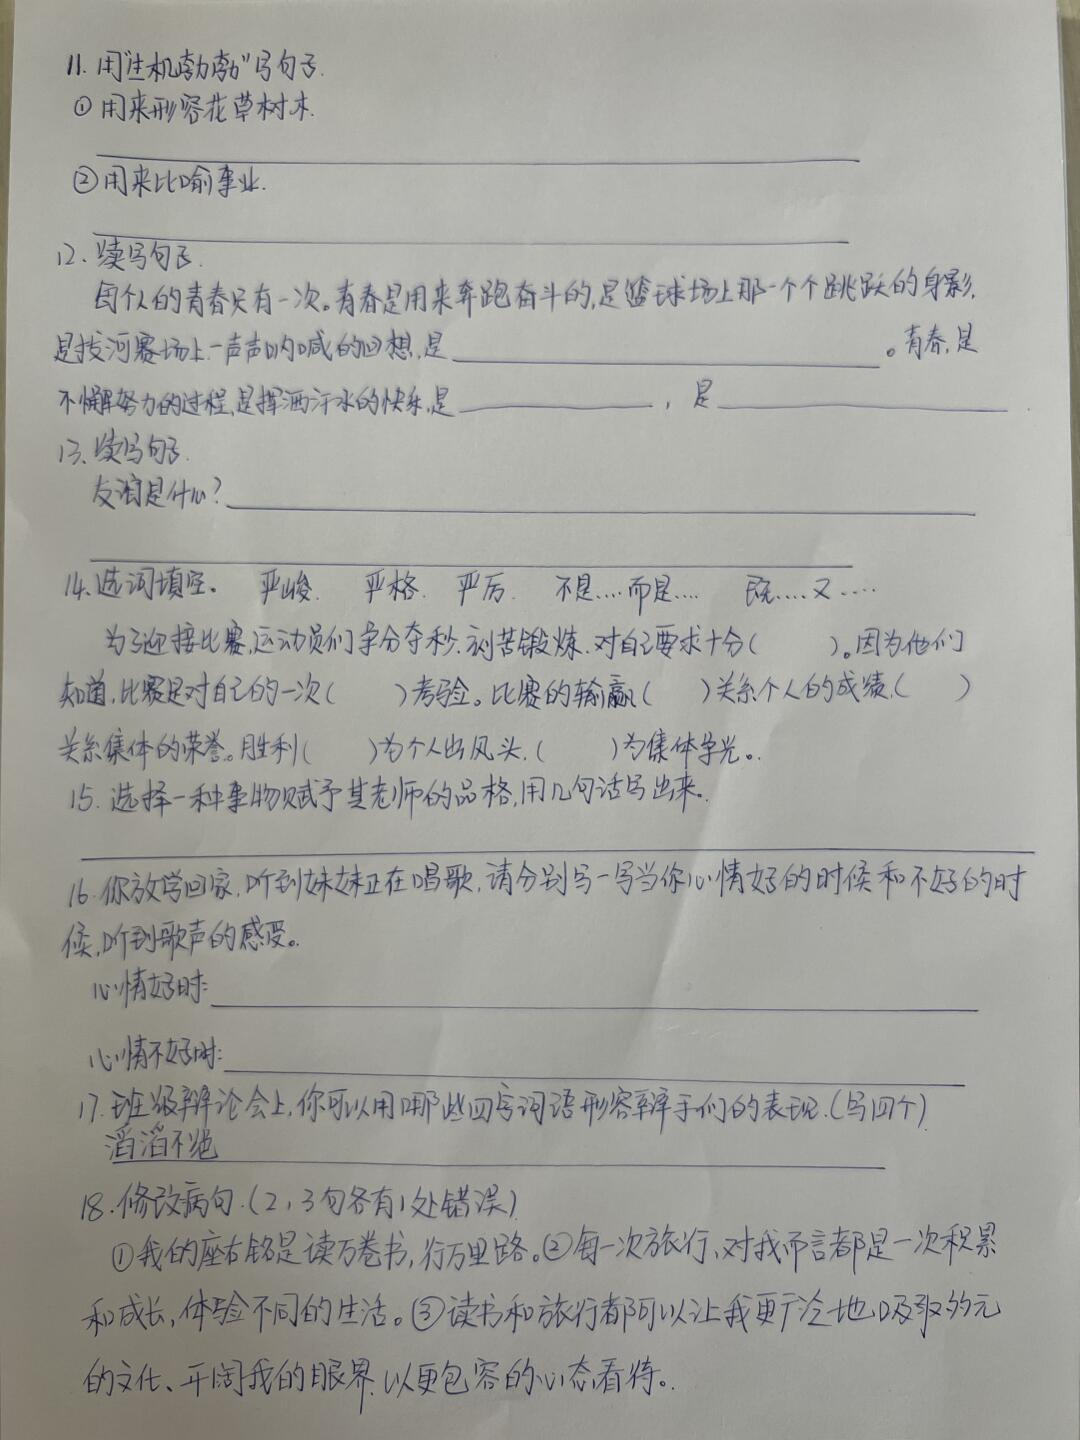 11. 用"生机勃勃"写句子.
① 用来形容花草树木.
② 用来比喻事业.
12. 续写句子.
每个人的青春只有一次。青春是用来奔跑奋斗的,是篮球场上那一个个跳跃的身影,
是拔河赛场上一声声呐喊的回想,是。青春,是
不懈努力的过程,是挥洒汗水的快乐,是,是
13. 续写句子.
友谊是什么?
14. 选词填空。 严峻. 严格. 严厉. 不是....而是.... 既.....又.....
为了迎接比赛,运动员们争分夺秒.刻苦锻炼.对自己要求十分( )。因为他们
知道,比赛是对自己的一次( )考验。比赛的输赢( )关系个人的成绩,( )
关系集体的荣誉。胜利( )为个人出风头,( )为集体争光。
15. 选择一种事物赋予其老师的品格,用几句话写出来。
16. 你放学回家,听到妹妹正在唱歌,请分别写一写当你心情好的时候和不好的时
候,听到歌声的感受。
心情好时:
心情不好时:
17. 班级辩论会上,你可以用哪些四字词语形容辩手们的表现.(写四个)
滔滔不绝
18. 修改病句.(2,3句各有1处错误)
①我的座右铭是读万卷书,行万里路。②每一次旅行,对我而言都是一次积累
和成长,体验不同的生活。③读书和旅行都可以让我更广泛地吸取多元
的文化、开阔我的眼界,以更包容的心态看待。